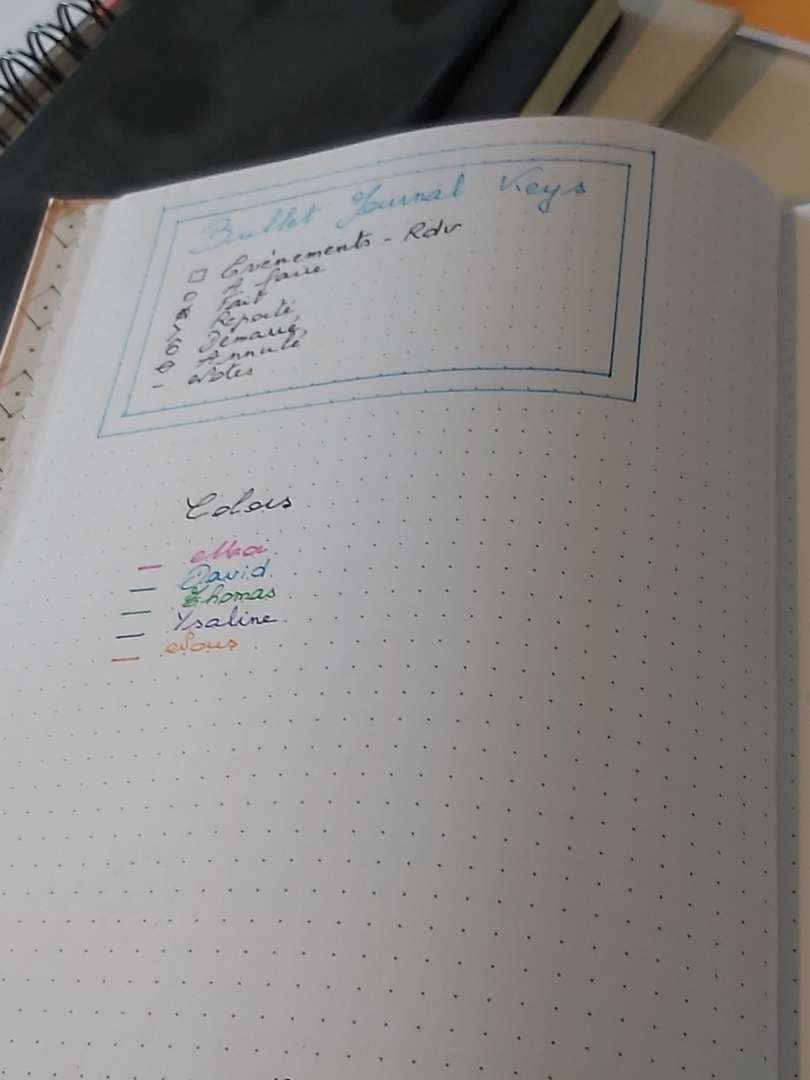 Bullet Journal Keys
□ Evénements - Rdv
A faire
Fait
Reporté
Démarré
Annulé
- Notes
Colors
— Moi
— David
— Thomas
— Ysaline
— Nous